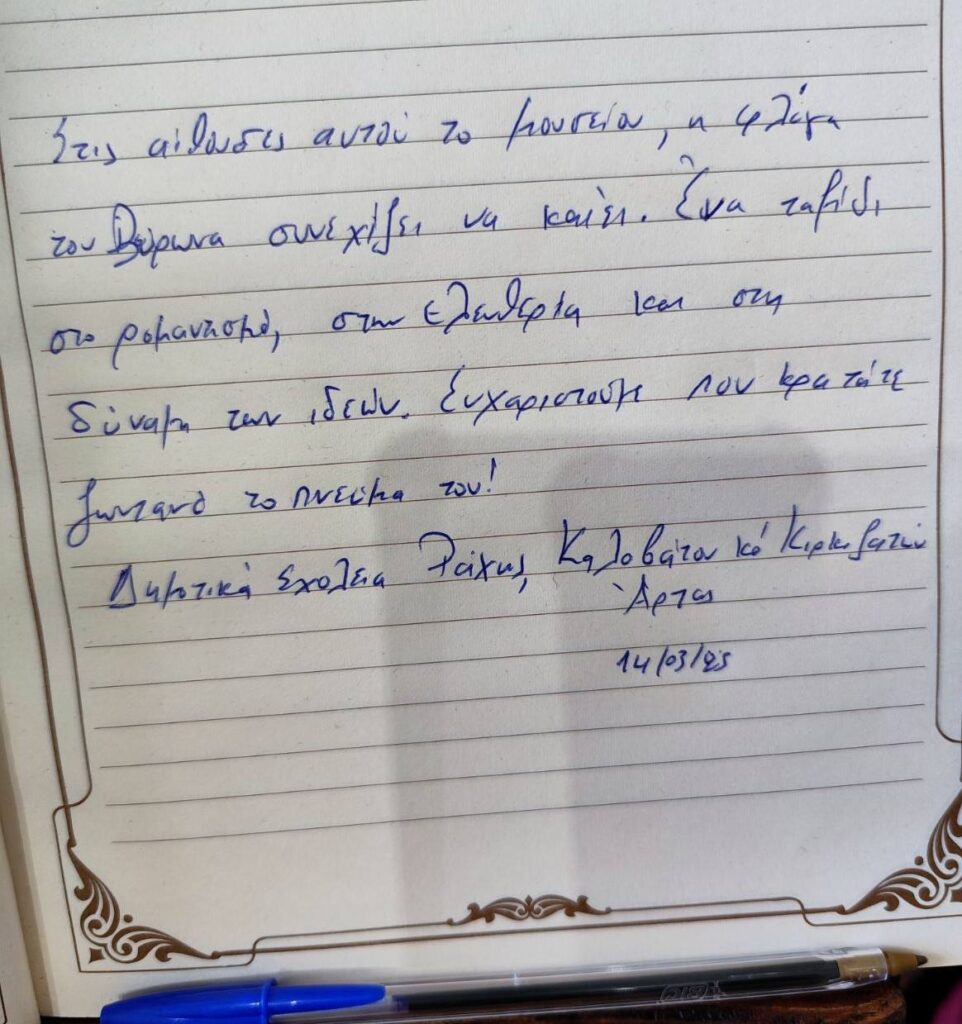 Στις αίθουσες αυτού το μουσείου, η φλόγα
του Βύρωνα συνεχίζει να καίει. Ένα ταξίδι
στο ρομαντισμό, στην ελευθερία και στη
δύναμη των ιδεών. Ευχαριστούμε που κρατάτε
ζωντανό το πνεύμα του!
Δημοτικά Σχολεια Ράχης, Καλοβάτου κ' Κιρκιζατών
Άρτας
14/03/25
BIC